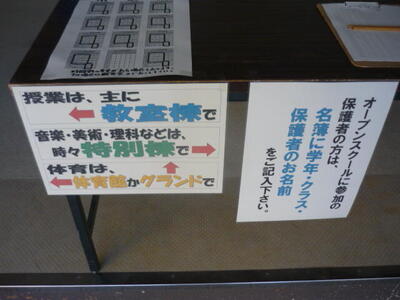 授業は、主に
教室棟で
音楽・美術・理科などは、
時々特別棟で
体育は、
体育館かグランドで
オープンスクールに参加の
保護者の方は、
名簿に学年・クラス・
保護者のお名前
をご記入下さい。